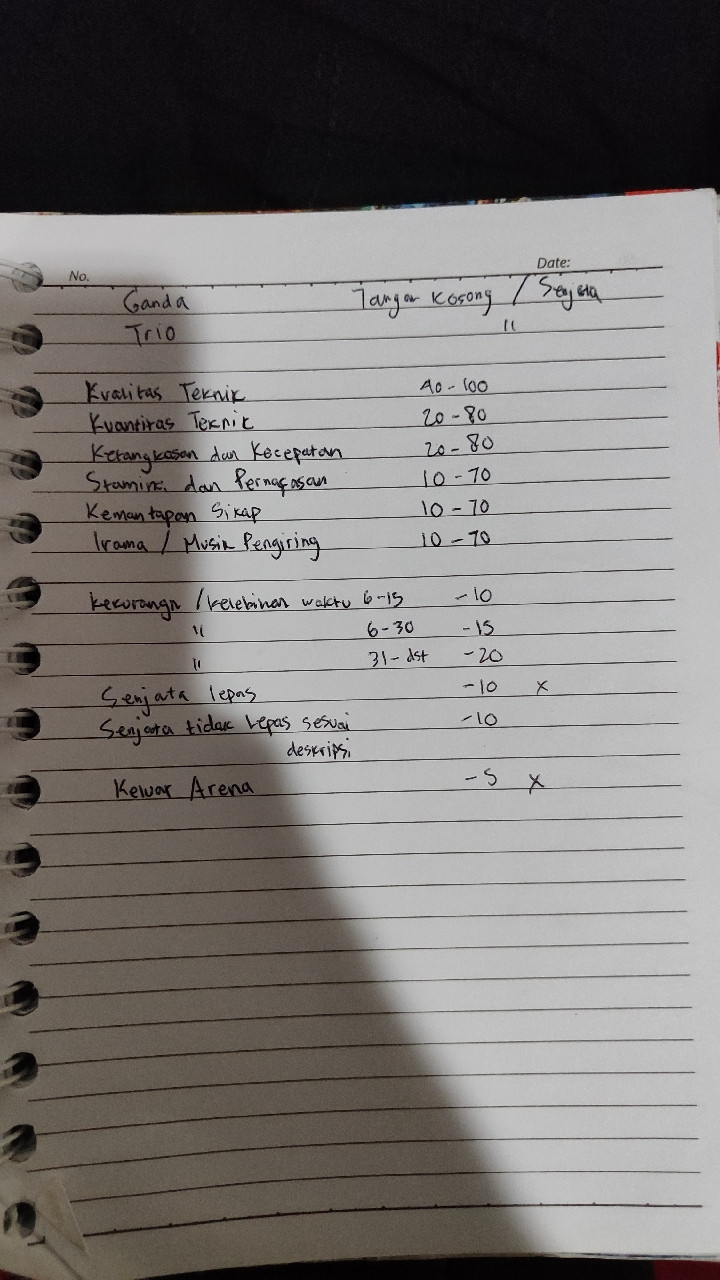 No.
Date:
Ganda Tangan Kosong / Senjata
Trio "
Kualitas Teknik 40-100
Kuantitas Teknik 20-80
Ketangkasan dan Kecepatan 20-80
Stamina dan Pernafasan 10-70
Kemantapan Sikap 10-70
Irama / Musik Pengiring 10-70
Kekurangn / Kelebihan waktu 6-15 -10
" 6-30 -15
" 31-dst -20
Senjata lepas -10 x
Senjata tidak Lepas sesuai -10
deskripsi
Keluar Arena -5 x